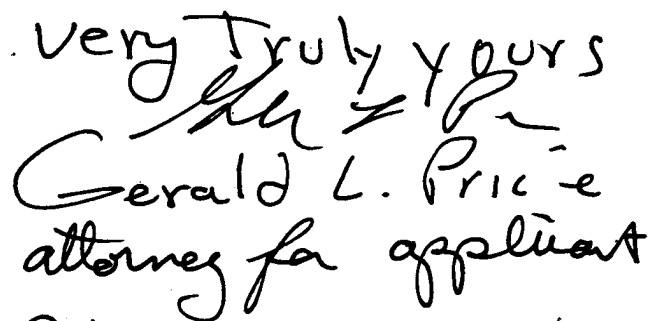 Very Truly yours
Gerald L. Price
attorney for applicant